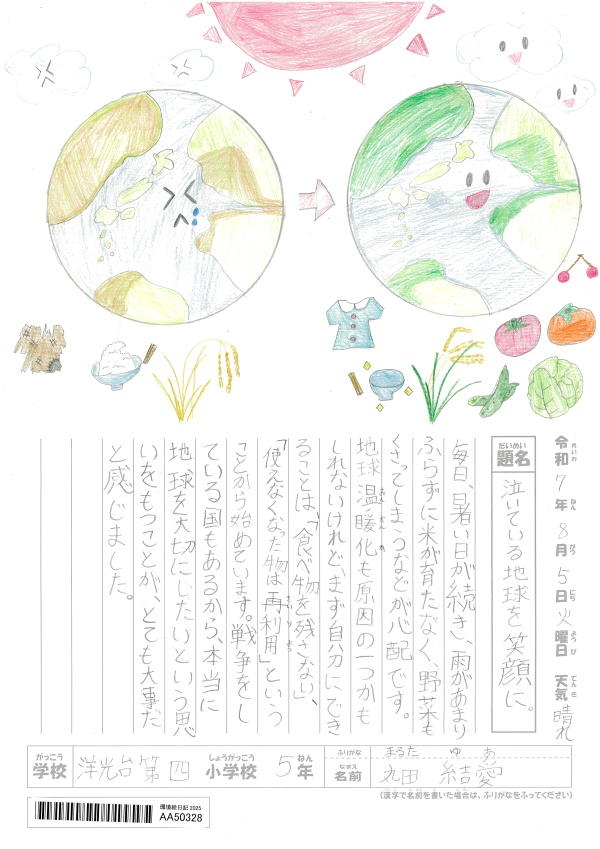 令和7年8月5日火曜日 天気 晴れ
れいわ ねん がつ にち ようび てんき
だいめい
題名 泣いている地球を笑顔に。
毎日、暑い日が続き、雨があまり
ふらずに米が育たなく、野菜も
くさってしまうなどが心配です。
地球温暖化も原因の一つかも
おんだんか
しれないけれど、まず自分にでき
ることは、「食べ物を残さない」、
「使えなくなった物は再利用」という
さいりよう
ことから始めています。戦争をし
ている国もあるから、本当に
地球を大切にしたいという思
いをもつことが、とても大事だ
と感じました。
がっこう しょうがっこう ねん ふりがな まるた ゆあ
学校 洋光台第四 小学校 5年 なまえ 名前 丸田 結愛
(漢字で名前を書いた場合は、ふりがなをふってください)
環境絵日記 2025
AA50328